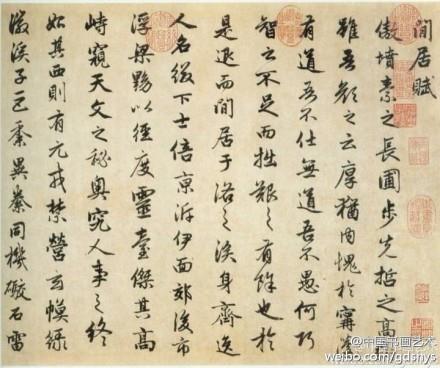 閒居賦
傲墳素之長圃步先哲之高
雖吾顏之云厚猶內愧於甯
有道吾不仕無道吾不愚何巧
智之不足而拙艱之有餘也於
是退而閒居于洛之涘身齊逸
人名綴下士倍京泝伊面郊後市
浮梁黝以徑度靈臺傑其高
峙窺天文之秘奧究人事之終
始其西則有元戎禁營玄幙綠
徽溪子巨黍異絭同機礮石雷
@中国书画艺术
weibo.com/gdshys